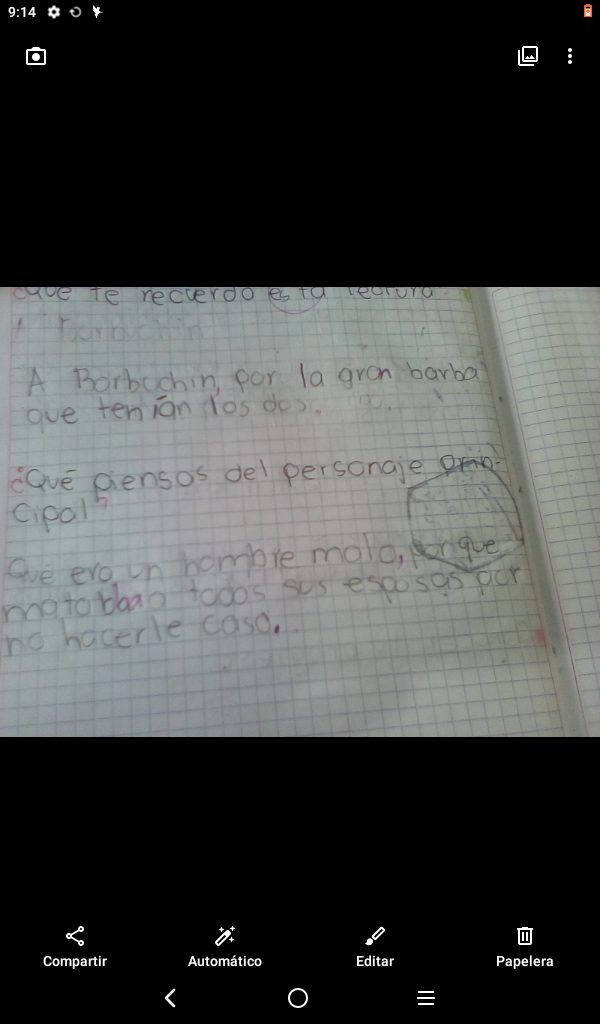 9:14
que te recuerda esta lectura
Barbuchin
A Barbuchin, por la gran barba
que tenían los dos.
¿Qué piensas del personaje prin-
cipal?
Que era un hombre malo, porque
mataba a todas sus esposas por
no hacerle caso.
Compartir
Automático
Editar
Papelera